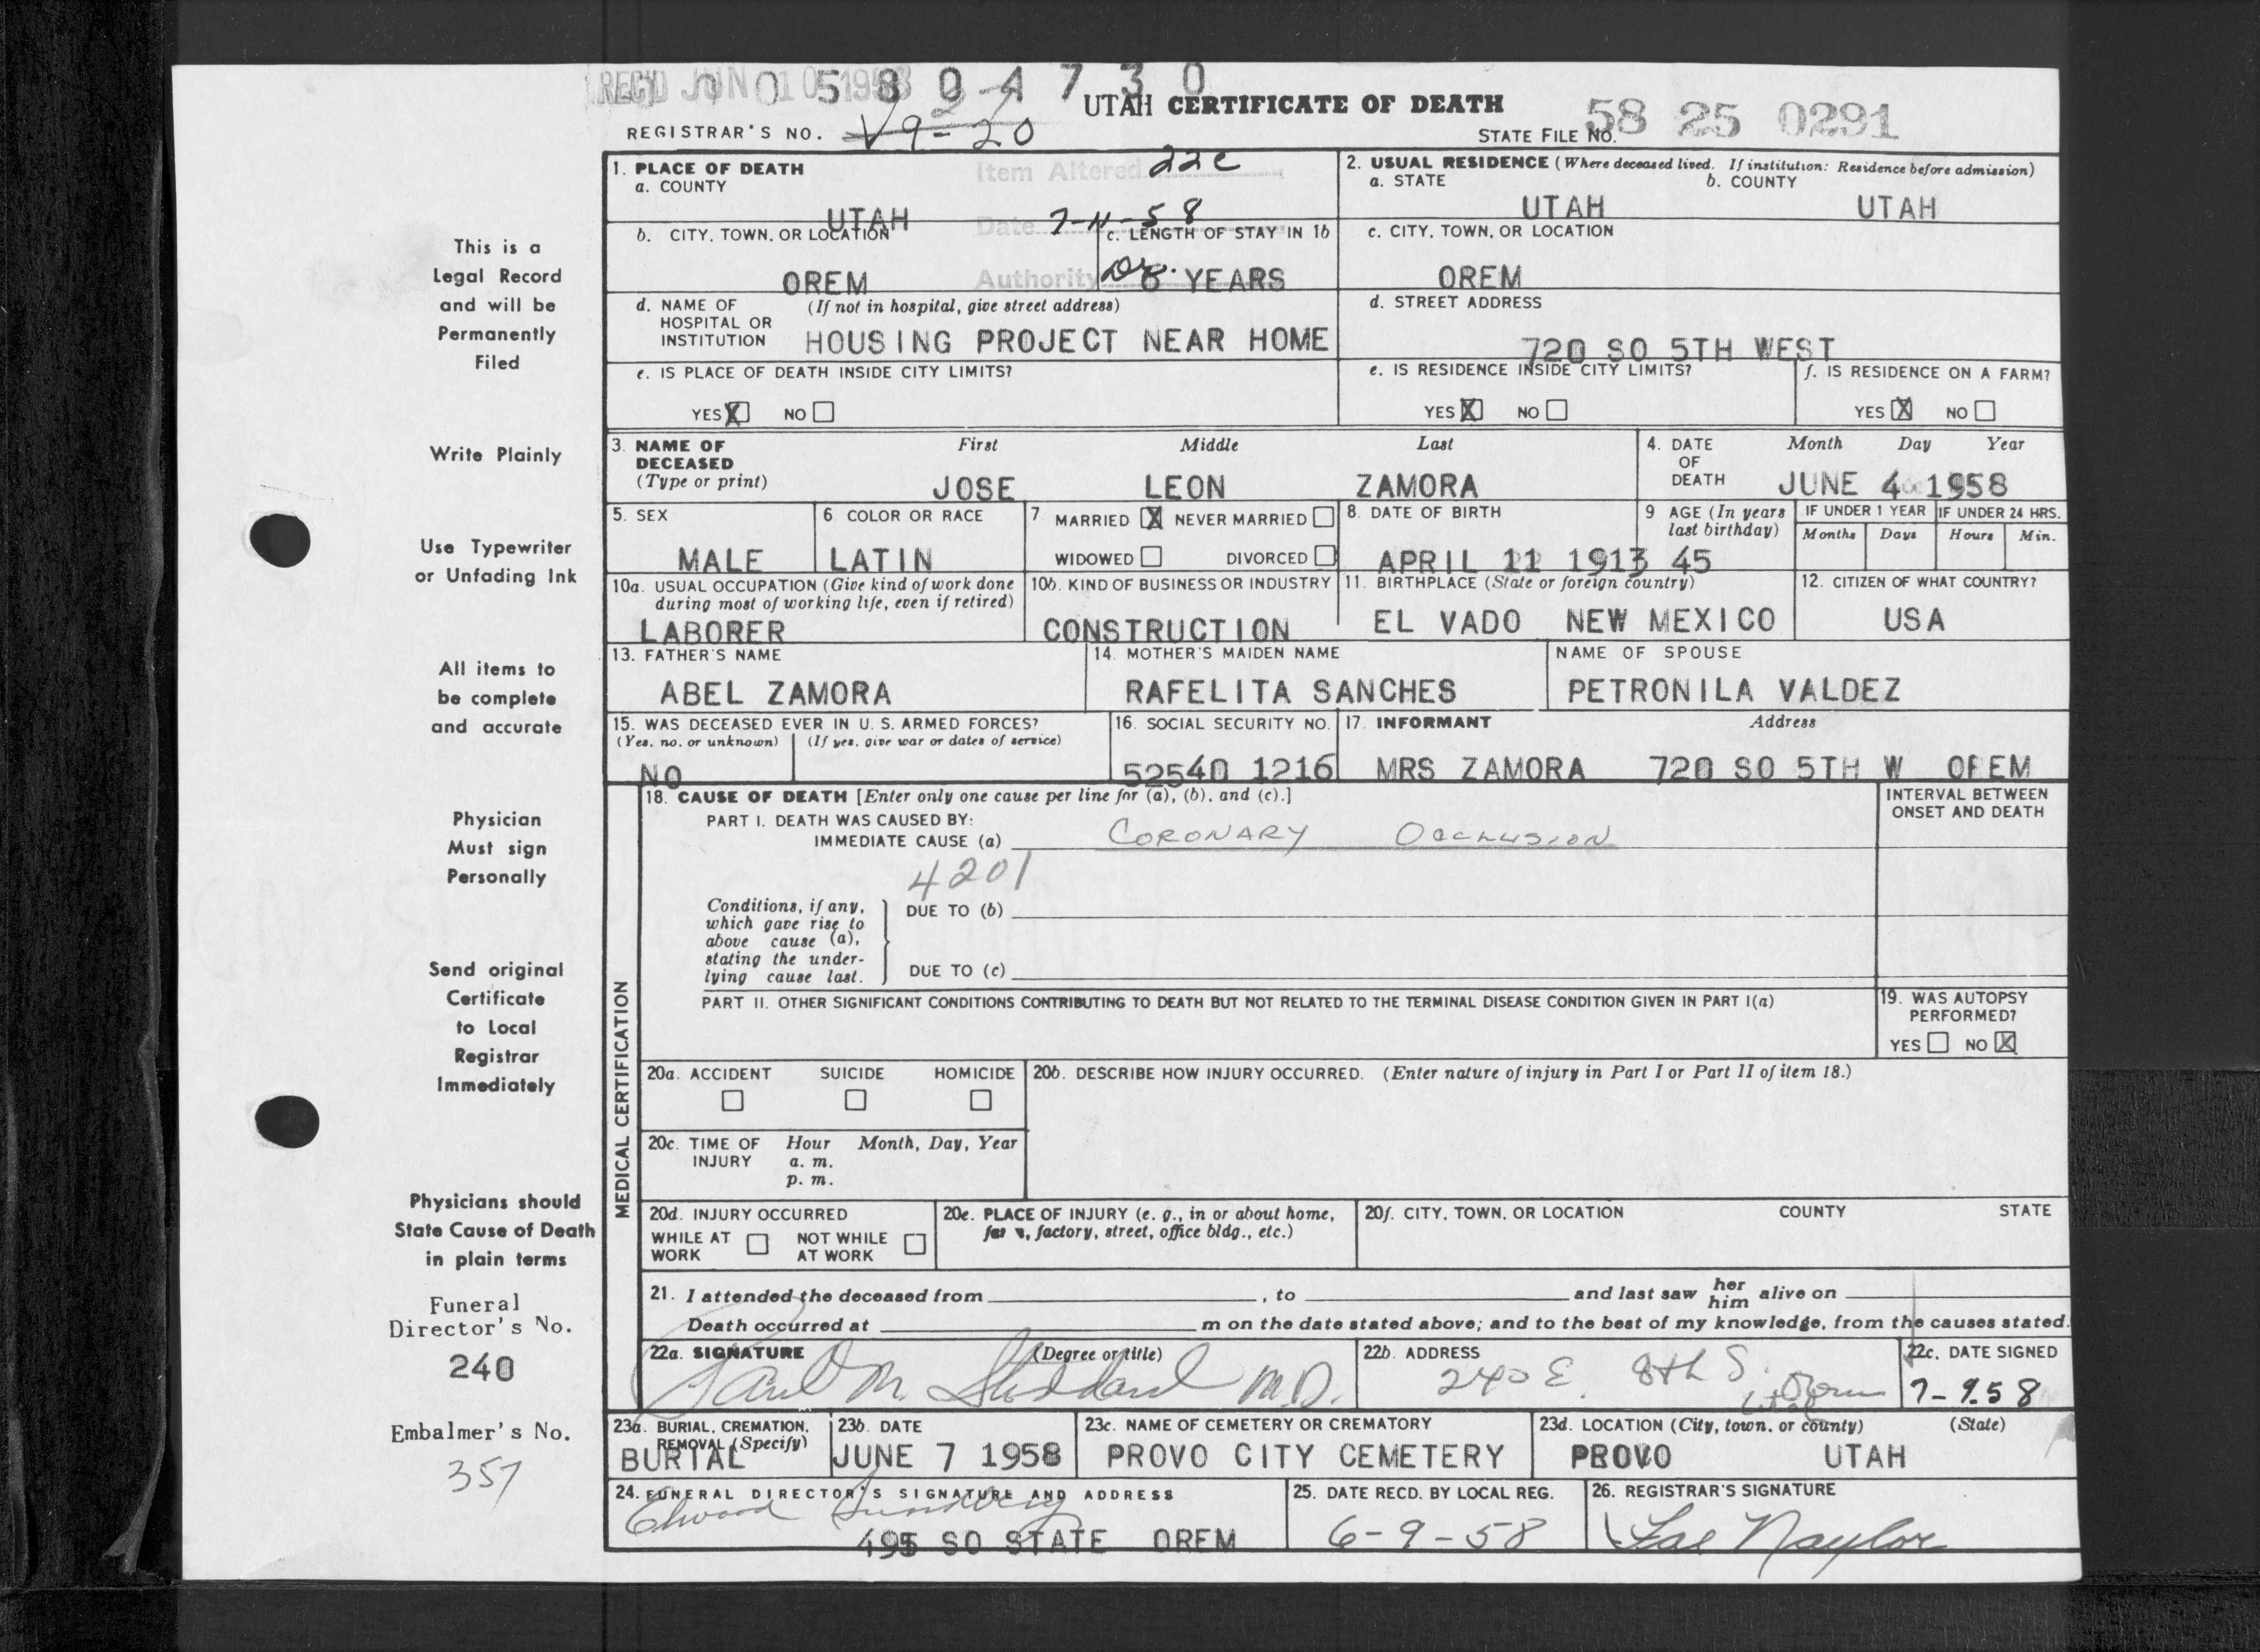 REC'D JUN 10 1958
0 0 5 8 0 4 7 3 0
UTAH CERTIFICATE OF DEATH
REGISTRAR'S NO. V9-20
STATE FILE NO. 58 25 0291
This is a
Legal Record
and will be
Permanently
Filed
Write Plainly
Use Typewriter
or Unfading Ink
All items to
be complete
and accurate
Physician
Must sign
Personally
Send original
Certificate
to Local
Registrar
Immediately
Physicians should
State Cause of Death
in plain terms
Funeral
Director's No.
240
Embalmer's No.
357
1. PLACE OF DEATH
a. COUNTY
UTAH
Item Altered 22c
Date 7-11-58
Authority Dr.
2. USUAL RESIDENCE (Where deceased lived. If institution: Residence before admission)
a. STATE b. COUNTY
UTAH UTAH
b. CITY, TOWN, OR LOCATION
OREM
c. LENGTH OF STAY IN 1b
8 YEARS
c. CITY, TOWN, OR LOCATION
OREM
d. NAME OF (If not in hospital, give street address)
HOSPITAL OR
INSTITUTION HOUSING PROJECT NEAR HOME
d. STREET ADDRESS
720 SO 5TH WEST
e. IS PLACE OF DEATH INSIDE CITY LIMITS?
YES X NO
e. IS RESIDENCE INSIDE CITY LIMITS?
YES X NO
f. IS RESIDENCE ON A FARM?
YES X NO
3. NAME OF First Middle Last
DECEASED
(Type or print) JOSE LEON ZAMORA
4. DATE Month Day Year
OF
DEATH JUNE 4 1958
5. SEX
MALE
6 COLOR OR RACE
LATIN
7 MARRIED X NEVER MARRIED
WIDOWED DIVORCED
8. DATE OF BIRTH
APRIL 11 1913
9 AGE (In years
last birthday)
45
IF UNDER 1 YEAR IF UNDER 24 HRS.
Months Days Hours Min.
10a. USUAL OCCUPATION (Give kind of work done
during most of working life, even if retired)
LABORER
10b. KIND OF BUSINESS OR INDUSTRY
CONSTRUCTION
11. BIRTHPLACE (State or foreign country)
EL VADO NEW MEXICO
12. CITIZEN OF WHAT COUNTRY?
USA
13. FATHER'S NAME
ABEL ZAMORA
14. MOTHER'S MAIDEN NAME
RAFELITA SANCHES
NAME OF SPOUSE
PETRONILA VALDEZ
15. WAS DECEASED EVER IN U. S. ARMED FORCES?
(Yes, no, or unknown) (If yes, give war or dates of service)
NO
16. SOCIAL SECURITY NO.
52540 1216
17. INFORMANT Address
MRS ZAMORA 720 SO 5TH W OREM
MEDICAL CERTIFICATION
18. CAUSE OF DEATH [Enter only one cause per line for (a), (b), and (c).]
PART I. DEATH WAS CAUSED BY:
IMMEDIATE CAUSE (a) CORONARY OCCLUSION
4201
INTERVAL BETWEEN
ONSET AND DEATH
Conditions, if any,
which gave rise to
above cause (a),
stating the under-
lying cause last.
DUE TO (b)
DUE TO (c)
PART II. OTHER SIGNIFICANT CONDITIONS CONTRIBUTING TO DEATH BUT NOT RELATED TO THE TERMINAL DISEASE CONDITION GIVEN IN PART I(a)
19. WAS AUTOPSY
PERFORMED?
YES NO X
20a. ACCIDENT SUICIDE HOMICIDE
20b. DESCRIBE HOW INJURY OCCURRED. (Enter nature of injury in Part I or Part II of item 18.)
20c. TIME OF Hour Month, Day, Year
INJURY a. m.
p. m.
20d. INJURY OCCURRED
WHILE AT NOT WHILE
WORK AT WORK
20e. PLACE OF INJURY (e. g., in or about home,
farm, factory, street, office bldg., etc.)
20f. CITY, TOWN, OR LOCATION COUNTY STATE
21. I attended the deceased from , to and last saw her him alive on
Death occurred at m on the date stated above; and to the best of my knowledge, from the causes stated.
22a. SIGNATURE (Degree or title)
Paul M. Stoddard M.D.
22b. ADDRESS
240 E. 8th S. Orem Utah
22c. DATE SIGNED
7-9-58
23a. BURIAL, CREMATION,
REMOVAL (Specify)
BURIAL
23b. DATE
JUNE 7 1958
23c. NAME OF CEMETERY OR CREMATORY
PROVO CITY CEMETERY
23d. LOCATION (City, town, or county) (State)
PROVO UTAH
24. FUNERAL DIRECTOR'S SIGNATURE AND ADDRESS
Elwood Sundberg
495 SO STATE OREM
25. DATE RECD. BY LOCAL REG.
6-9-58
26. REGISTRAR'S SIGNATURE
Fae Naylor